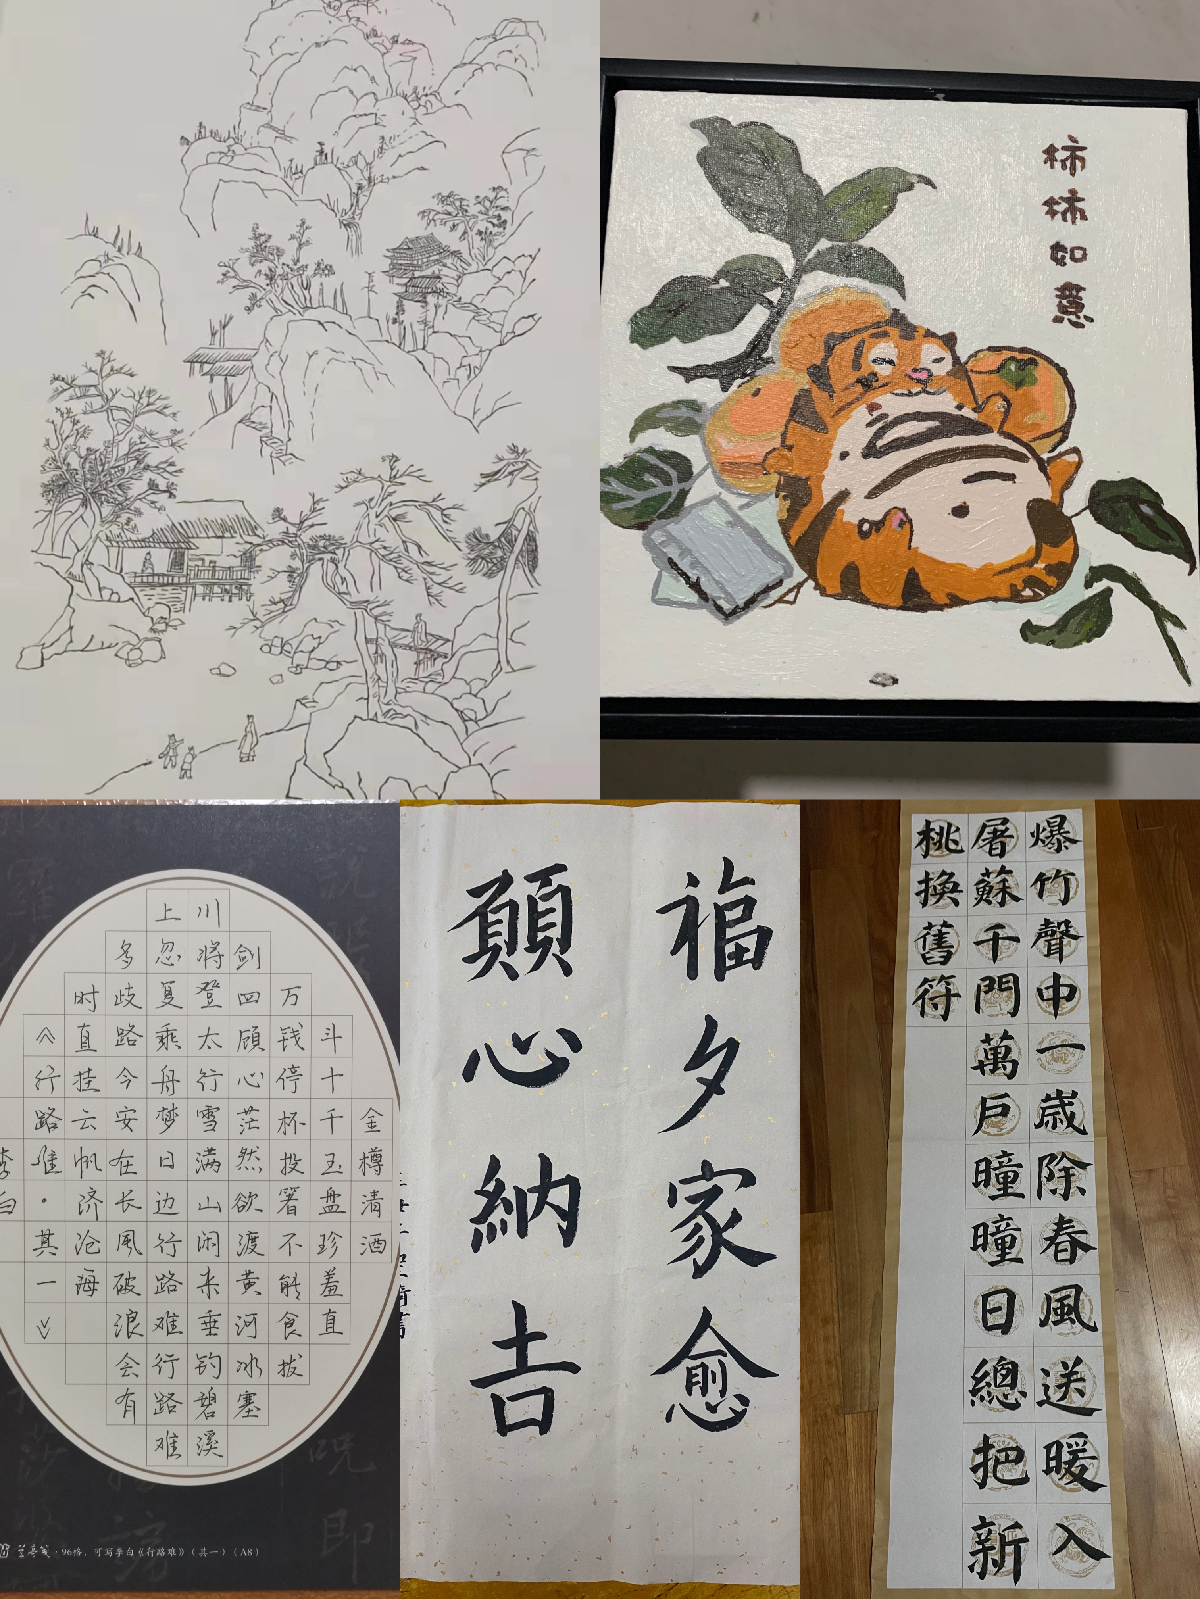 柿柿如意
金樽清酒
斗十千玉盘珍羞直
万钱停杯投箸不能食拔
剑四顾心茫然欲渡黄河冰塞
川将登太行雪满山闲来垂钓碧溪
上忽复乘舟梦日边行路难行路难
多歧路今安在长风破浪会有
时直挂云帆济沧海
《行路难·其一》
李白
96格，可写李白《行路难》（其一）（A8）
福夕家愈
願心納吉
爆竹聲中一歲除春風送暖入
屠蘇千門萬戶曈曈日總把新
桃換舊符